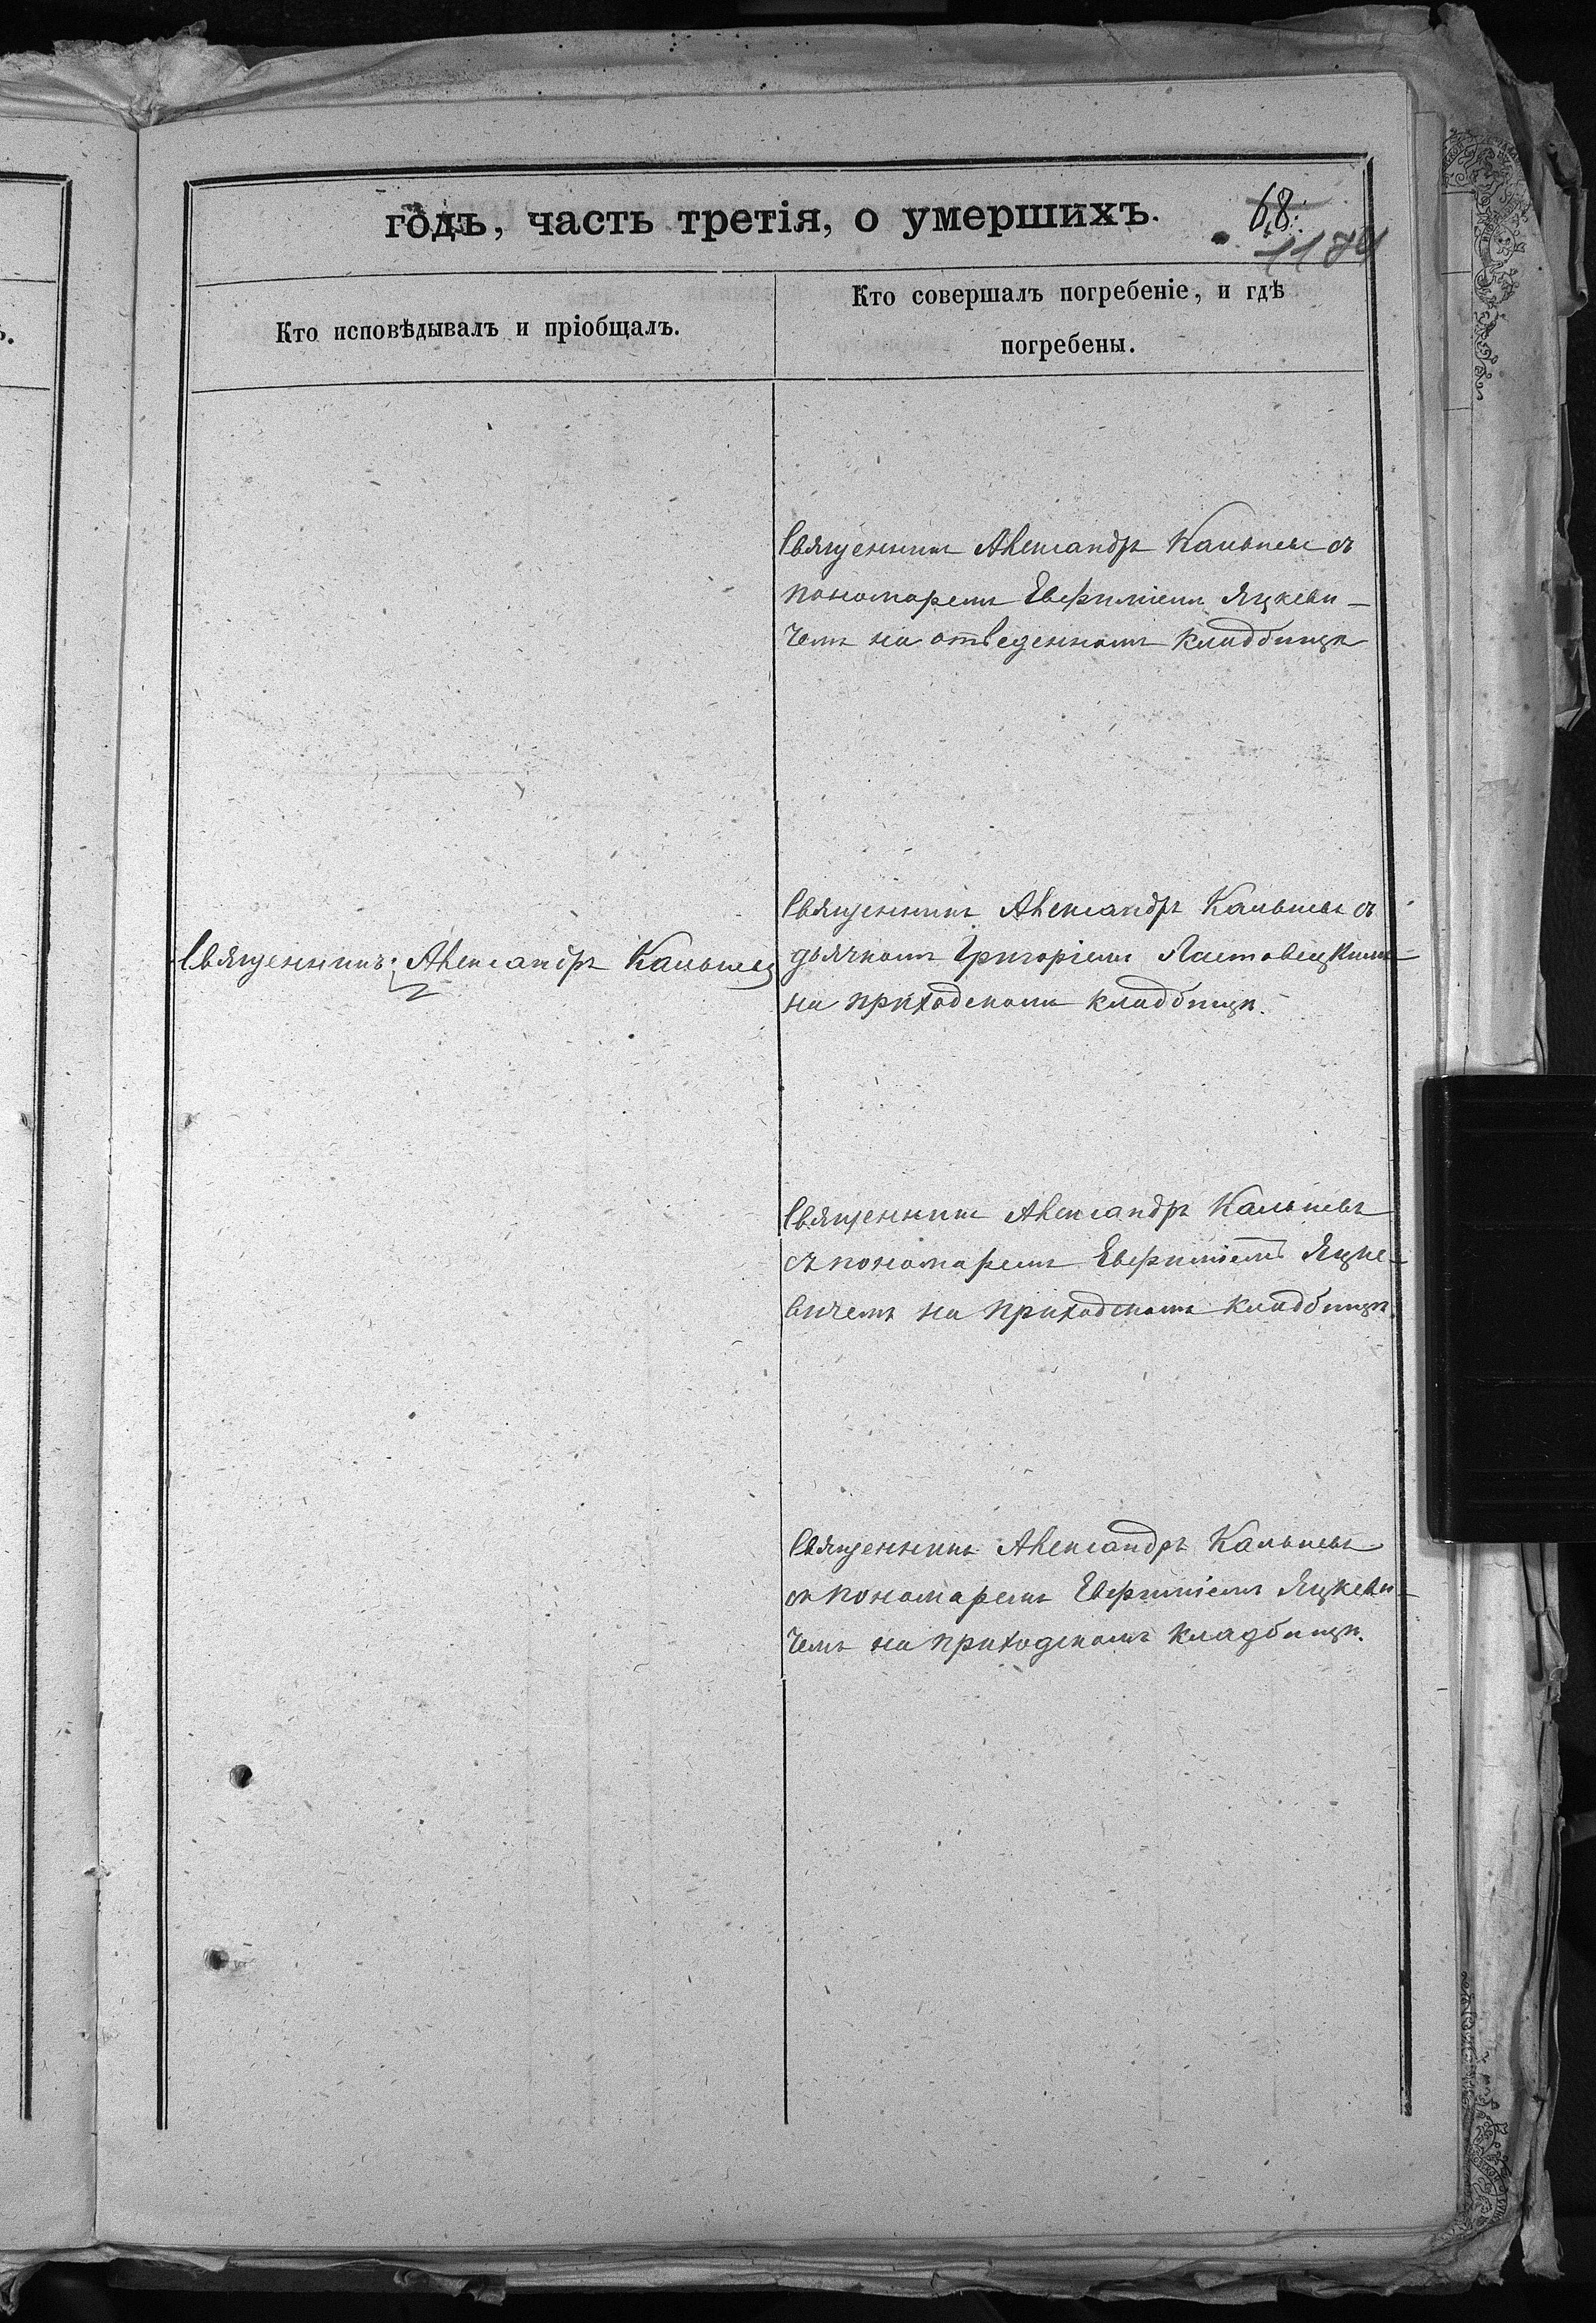 годъ, часть третія, о умершихъ.
68.
1184
Кто исповѣдывалъ и пріобщалъ.
Кто совершалъ погребеніе, и гдѣ
погребены.
Священникъ Александръ Кальневъ съ
пономаремъ Евфиміемъ Яцкеви-
чемъ на отведенномъ кладбищѣ
Священникъ Александръ Кальневъ
Священникъ Александръ Кальневъ съ
дьячкомъ Григоріемъ Ластовецкимъ
на приходскомъ кладбищѣ.
Священникъ Александръ Кальневъ
съ пономаремъ Евфиміемъ Яцке-
вичемъ на приходскомъ кладбищѣ.
Священникъ Александръ Кальневъ
съ пономаремъ Евфиміемъ Яцкеви-
чемъ на приходскомъ кладбищѣ.